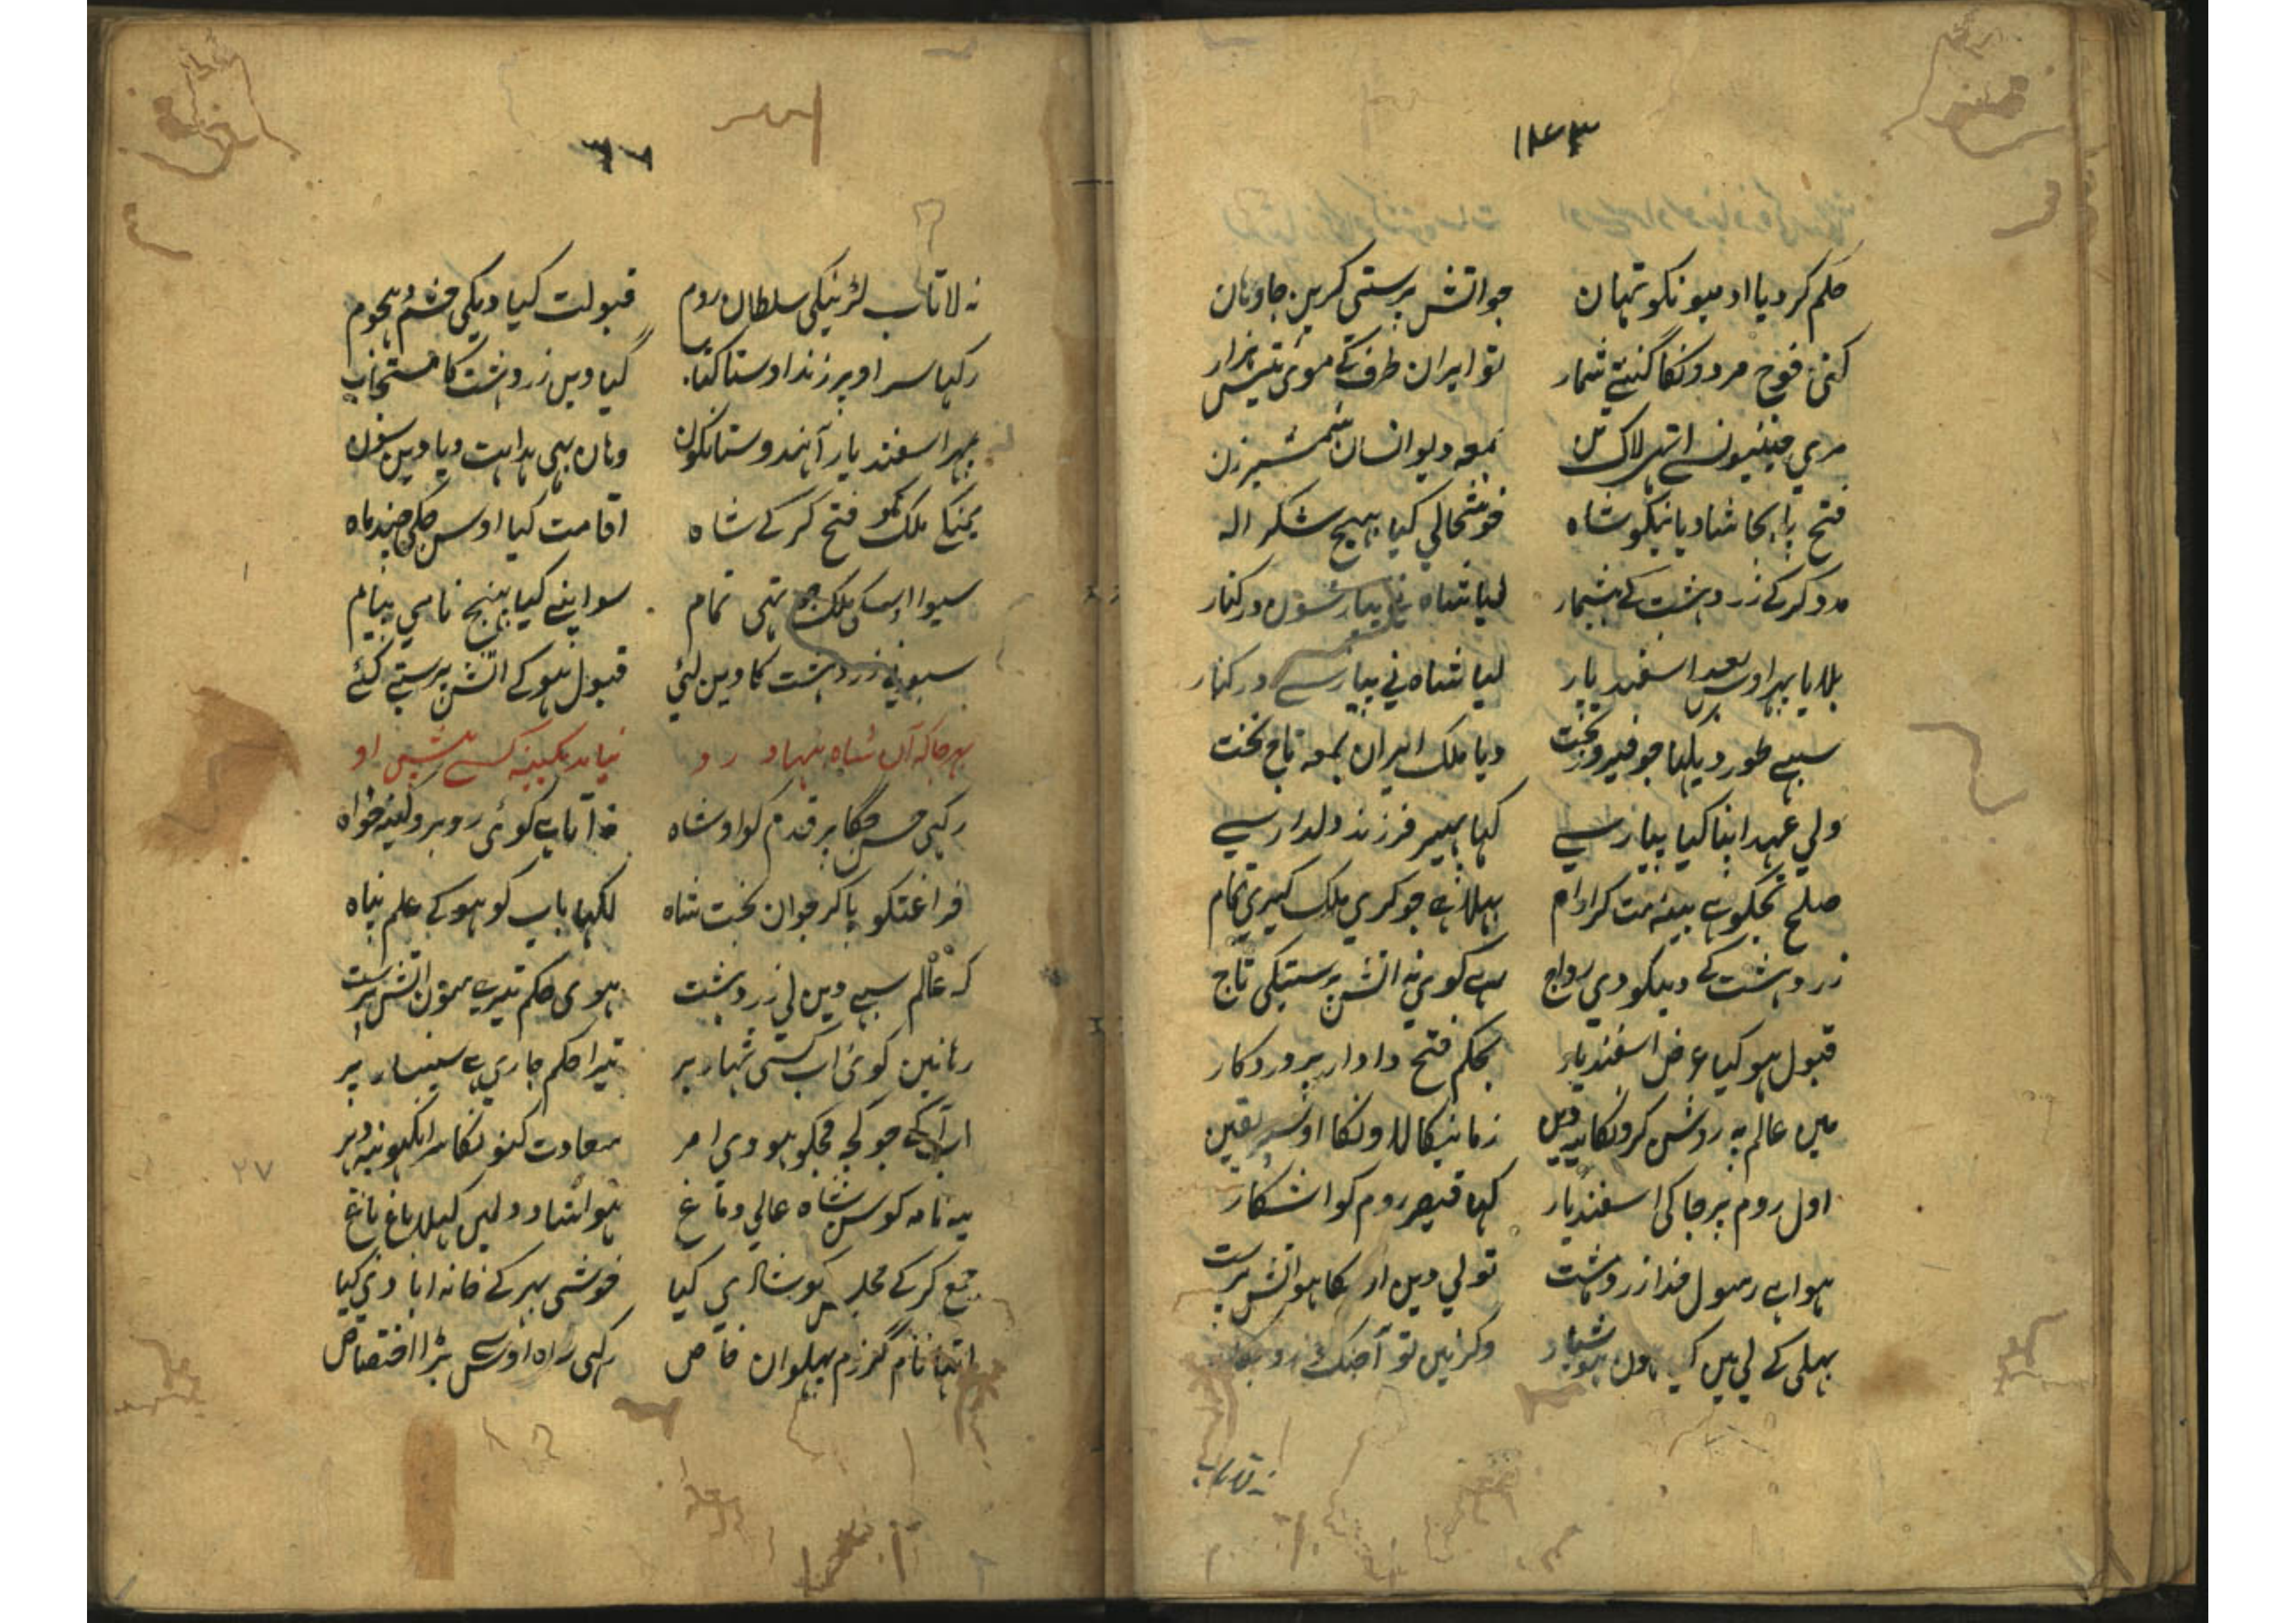 ۱۴۳
حکم کر دیا ادمیونکو تہان جو اتش پرستی کرین جاودان
کنی فوج مردونکا گنتے شمار تو ایران طرف کے موی تیس ہزار
مری چینیونسے اتہی لاک تن بمعہ دیو انسان شمشیر زن
فتح پا بجا شادیانیکو شاہ خوشحالی کیا بہیج شکر اله
مدد کرکے زردہشت کے بیشمار لیا شاہ نے پیار سون در کنار
بلایا پہر اوس بعد اسفندیار لیا شاہ نی پیار سے در کنار
سبہے طور دیکہا جو فیروز بخت دیا ملک ایران بمعہ تاج تخت
ولی عہد اپنا کیا پیار سے کہا پہیر فرزند دلدار سے
صلح تجکو ہے بیٹہ مت کر ارام پہلا ہے جو کری ملک گیری تمام
زردہشت کے دینکو دی رواج ہے کوی نہ اتش پرستیکی تاج
قبول ہو کیا عرض اسفندیار بحکم فتح دادار پروردکار
مین عالم پہ روشن کرونکا یہ دین زمانیکا لاونکا اوسپر یقین
اول روم پر جا کی اسفندیار کہا قیصر روم کو اشکار
ہوا ہے رسول خدا زردہشت تو لی دین کا ہو اتش پرست
بہلی کے لی ہین ہو شیاد وکر نہین تو آ جنک
نہ لا تاب
نہ لا تاب لڑنیکی سلطان روم قبولت کیا دیکی حشم و ہجوم
رکہا سر اوپر زند اوستا کتاب گیا دین زردہشت کا مستجاب
پہر اسفندیار آ ہندوستانکون وہان بہی ہدایت دیا دین سون
یمنکے ملک کو فتح کر کے شاہ اقامت کیا اوس جکہی چند ماہ
سیوا اسکی ملک جو تہی تمام سو اپنے کیا بہیج نامی پیام
سبونی زردہشت کا دین لئی قبول ہو کے اتش پرستے کئے
بہر جا کہ آن شاہ بنہاد رو نیامد بکینہ کسے پیش او
رکہی جس جگا پر قدم کو او شاہ نہ آتا ہے کوئی روبرو کینہ خواہ
فراغتکو پا کر جوان بخت شاہ لکہا باپ کو ہو کے علم پناہ
کہ عالم سبے دین لی زردہشت ہوی حکم تیرے سون اتش پرست
رہا نین کوئ اب کسی شہار پر تیرا حکم جاری ہے سینسار پر
اب آگے جو کچہ مجکو ہووی امر سعادت کنو نکا سر انکہونپہ دہر
یہ نامہ کو سن شاہ عالی دماغ ہوا شاد دلمین کہلا باغ باغ
جمع کر کے مجلس کو شادی کیا خوشی بہر کے خانہ ابادی کیا
اتہا نام گرزم پہلوان خاص رکہی راہ اوسے بڑا اختصاص
۲۷